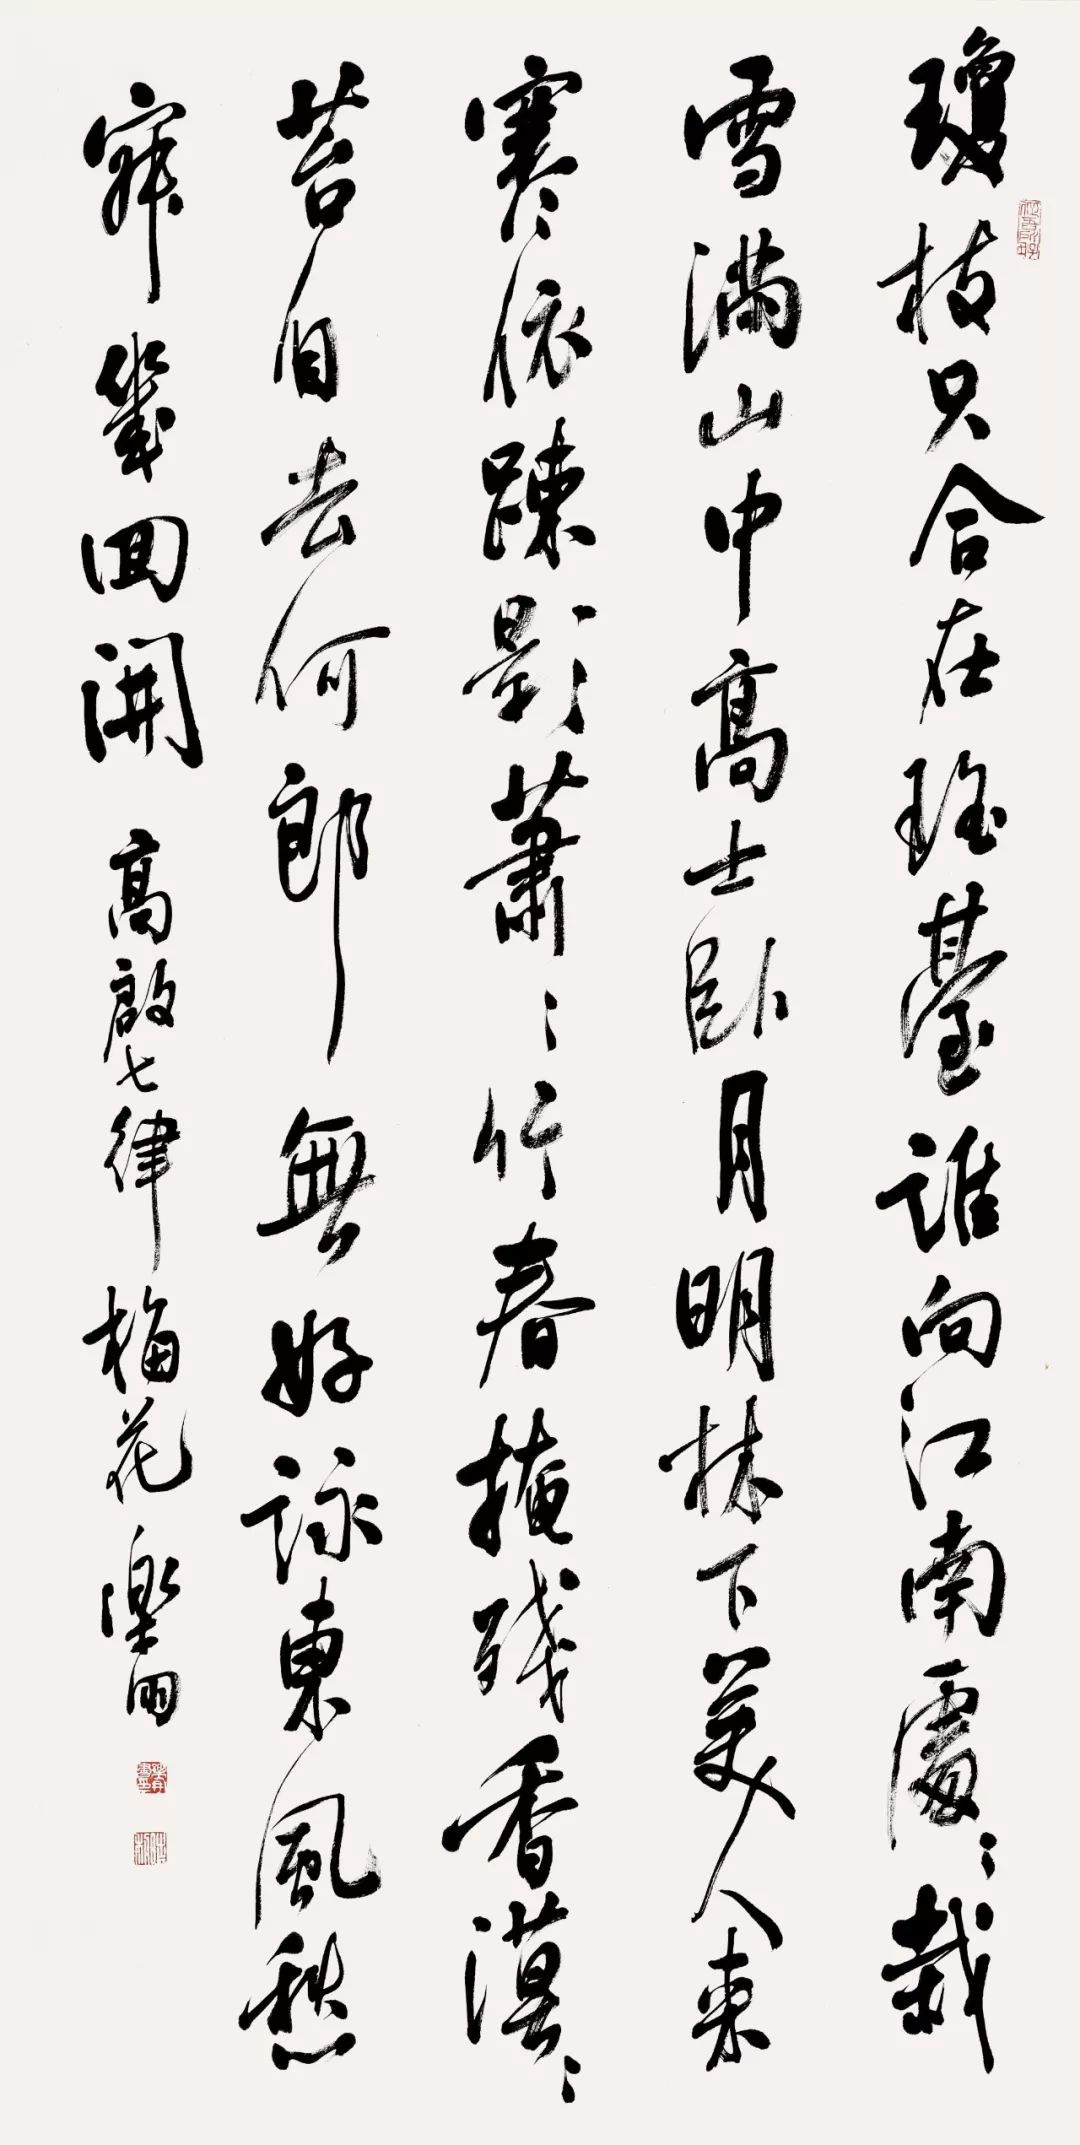 瓊枝只合在瑤臺誰向江南處々栽
雪滿山中高士臥月明林下美人來
寒依疎影蕭々竹春掩殘香漠々
苔自去何郎無好詠東風愁
寂幾回開 高啟七律梅花